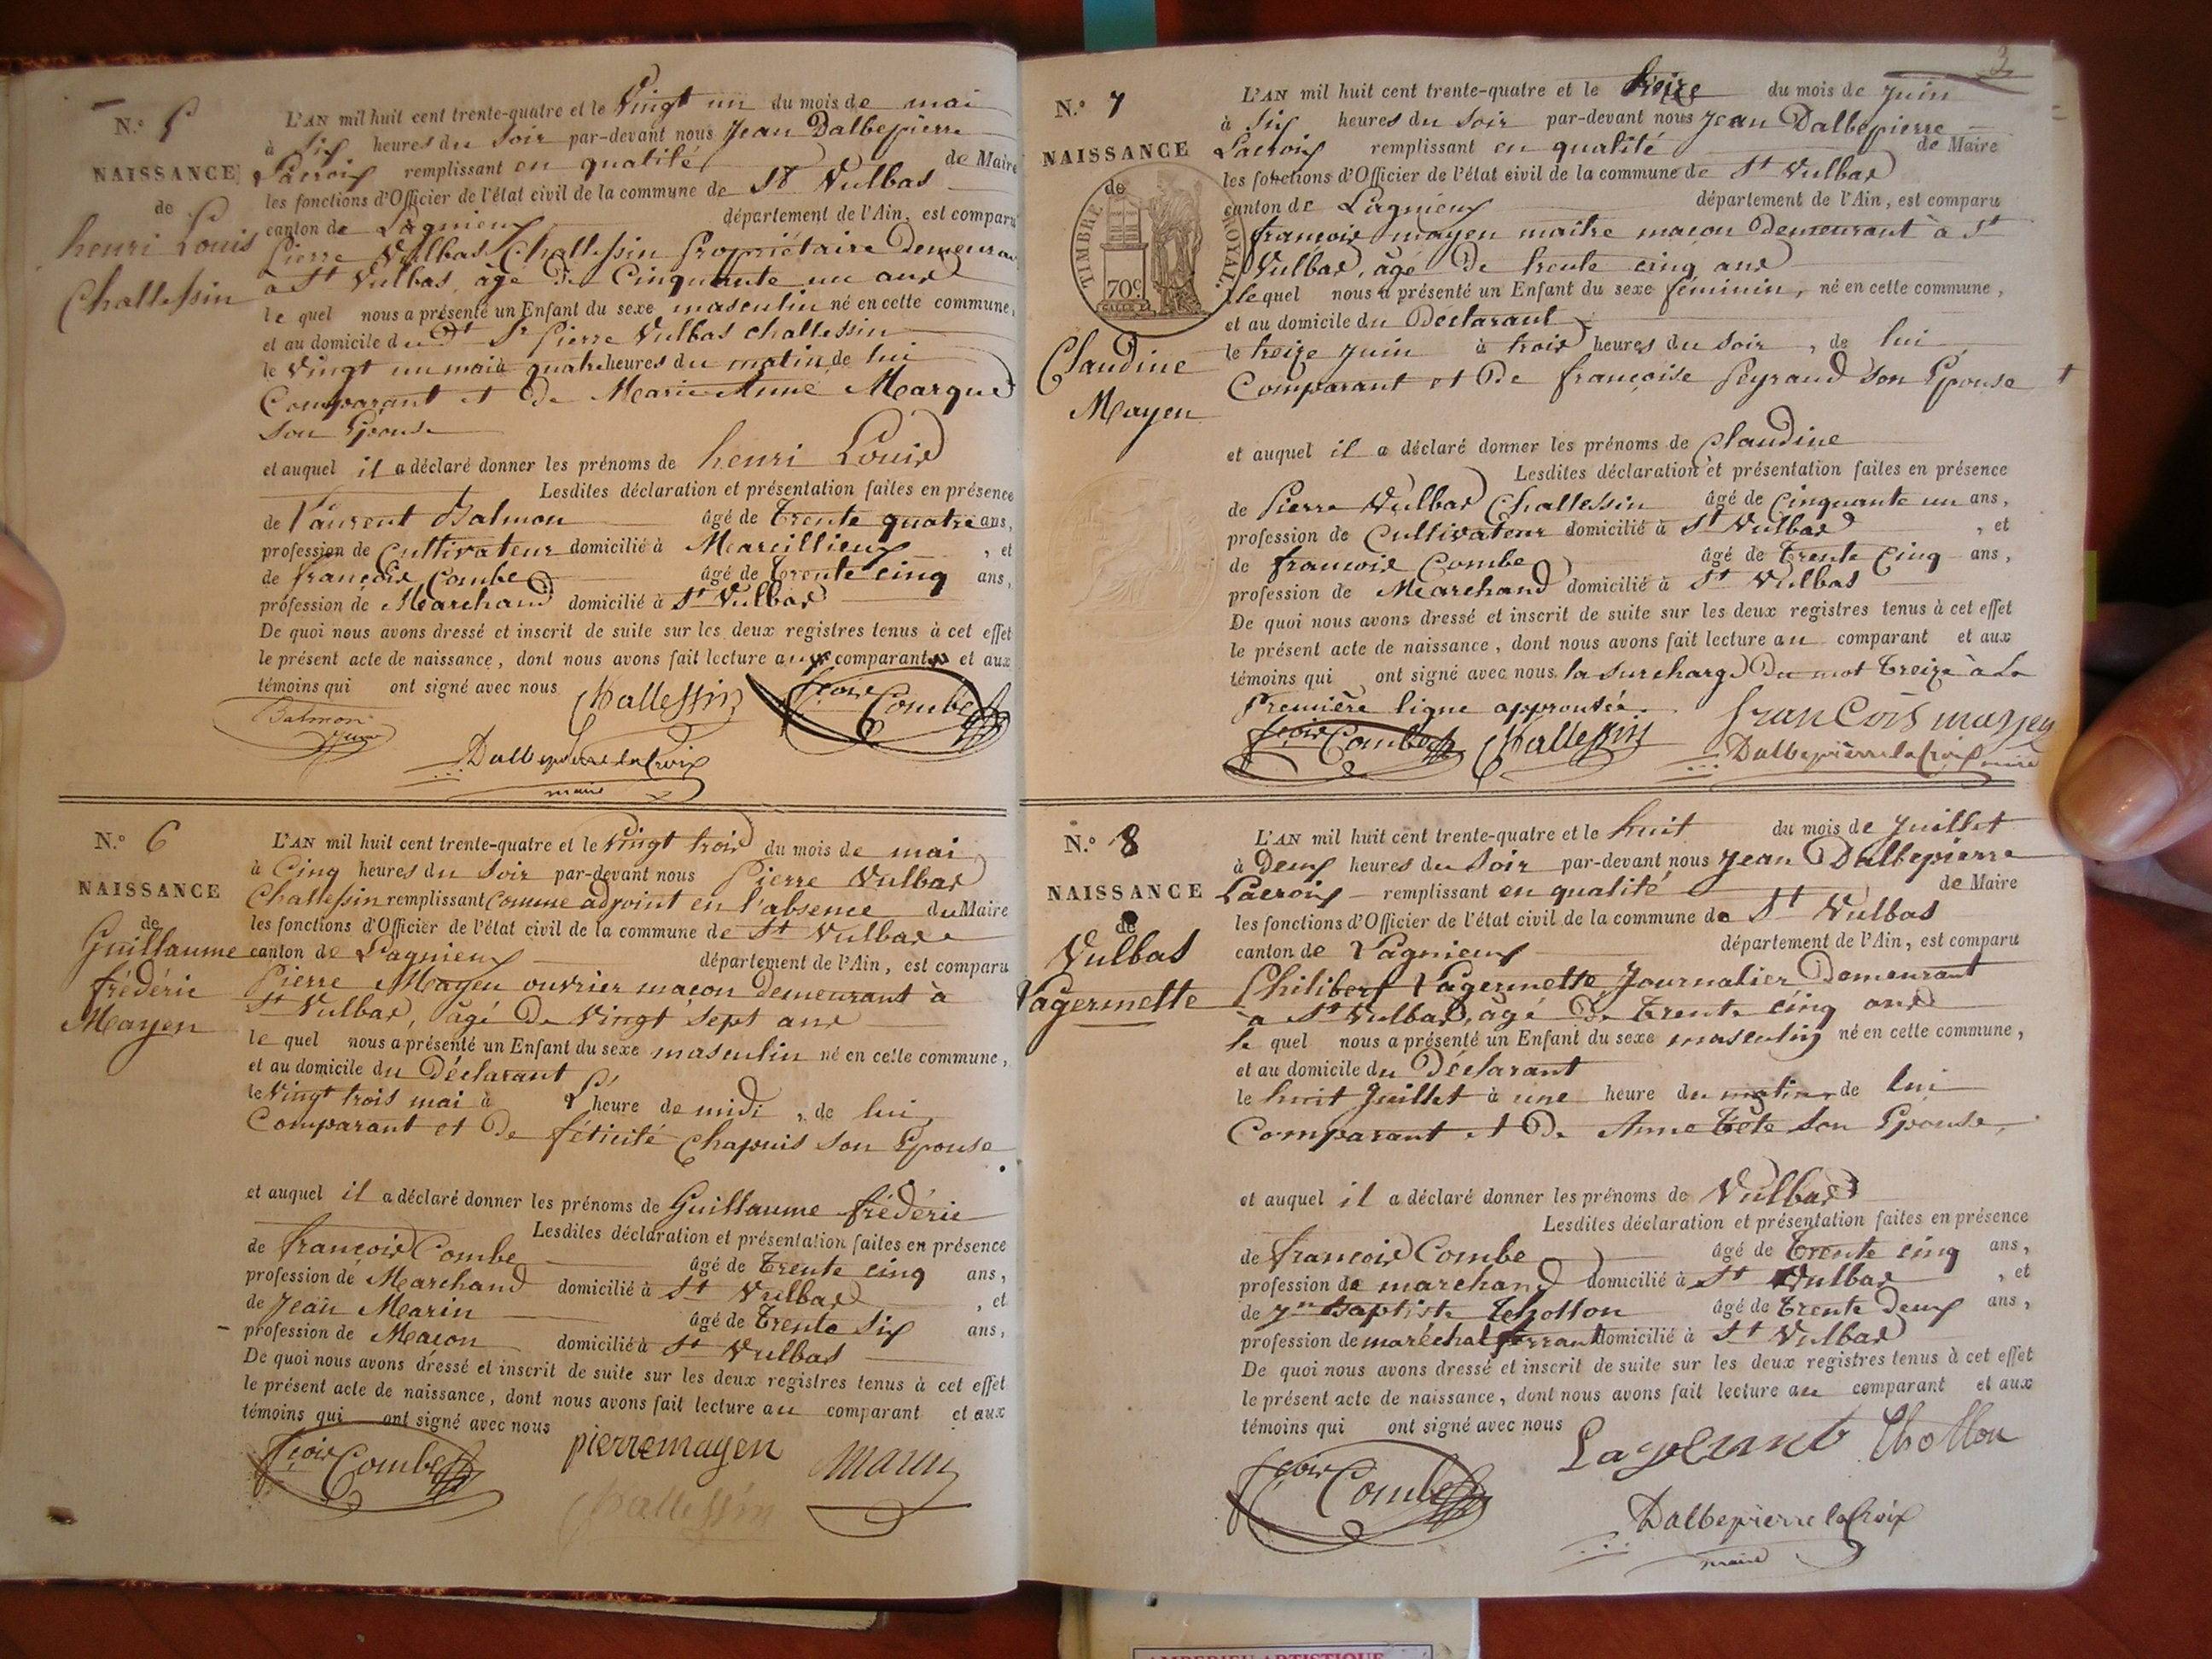 N.º 5
NAISSANCE
de
henri Louis
Challessin
L'AN mil huit cent trente-quatre et le Vingt un du mois de mai
à six heures du soir par-devant nous Jean Dalbepierre
Lacroix remplissant en qualité de Maire
les fonctions d'Officier de l'état civil de la commune de St Vulbas
canton de Lagnieux département de l'Ain, est comparu
Pierre Vulbas Challessin propriétaire Demeurant
à St Vulbas, âgé de Cinquante un ans
le quel nous a présenté un Enfant du sexe masculin né en cette commune,
et au domicile du dt Sr Pierre Vulbas challessin
le Vingt un mai à quatre heures du matin, de lui
Comparant et de Marie Anne Marque
son Epouse
et auquel il a déclaré donner les prénoms de henri Louis
Lesdites déclaration et présentation faites en présence
de Laurent Balmon âgé de trente quatre ans,
profession de Cultivateur domicilié à Marcillieux, et
de françois Combe âgé de trente cinq ans,
profession de Marchand domicilié à St Vulbas
De quoi nous avons dressé et inscrit de suite sur les deux registres tenus à cet effet
le présent acte de naissance, dont nous avons fait lecture aux comparants et aux
témoins qui ont signé avec nous Challessin fçois Combe
Balmon
Dalbepierre la Croix
maire
N.º 6
NAISSANCE
de
Guillaume
frédéric
Mayen
L'AN mil huit cent trente-quatre et le Vingt trois du mois de mai
à Cinq heures du soir par-devant nous Pierre Vulbas
Challessin remplissant comme adjoint en l'absence du Maire
les fonctions d'Officier de l'état civil de la commune de St Vulbas
canton de Lagnieux département de l'Ain, est comparu
Pierre Mayen ouvrier maçon demeurant à
St Vulbas, âgé de Vingt sept ans
le quel nous a présenté un Enfant du sexe masculin né en cette commune,
et au domicile du Déclarant
le Vingt trois mai à l' heure de midi, de lui
Comparant et de félicité Chapuis son Epouse
et auquel il a déclaré donner les prénoms de Guillaume frédéric
Lesdites déclaration et présentation faites en présence
de françois Combe âgé de trente cinq ans,
profession de Marchand domicilié à St Vulbas, et
de Jean Marin âgé de trente six ans,
profession de Macon domicilié à St Vulbas
De quoi nous avons dressé et inscrit de suite sur les deux registres tenus à cet effet
le présent acte de naissance, dont nous avons fait lecture au comparant et aux
témoins qui ont signé avec nous
fçois Combe pierre mayen marin
Challessin
2
N.º 7
NAISSANCE
de
TIMBRE ROYAL.
70c
Claudine
Mayen
L'AN mil huit cent trente-quatre et le treize du mois de Juin
à Six heures du soir par-devant nous Jean Dalbepierre
Lacroix remplissant en qualité de Maire
les fonctions d'Officier de l'état civil de la commune de St Vulbas
canton de Lagnieux département de l'Ain, est comparu
françois mayen maitre maçon Demeurant à St
Vulbas, âgé de trente cinq ans
lequel nous a présenté un Enfant du sexe féminin, né en cette commune,
et au domicile du Déclarant
le treize Juin à trois heures du soir, de lui
Comparant et de françoise Peyraud son Epouse
et auquel il a déclaré donner les prénoms de Claudine
Lesdites déclaration et présentation faites en présence
de Pierre Vulbas Challessin âgé de Cinquante un ans,
profession de Cultivateur domicilié à St Vulbas, et
de francois Combe âgé de trente cinq ans,
profession de Marchand domicilié à St Vulbas
De quoi nous avons dressé et inscrit de suite sur les deux registres tenus à cet effet
le présent acte de naissance, dont nous avons fait lecture au comparant et aux
témoins qui ont signé avec nous, la surcharge Du mot treize à la
Première ligne approuvée.
fçois Combe Challessin francois mayen
Dalbepierre la Croix maire
N.º 8
NAISSANCE
de
Vulbas
Lagermette
L'AN mil huit cent trente-quatre et le huit du mois de Juillet
à Deux heures du soir par-devant nous Jean Dalbepierre
Lacroix remplissant en qualité de Maire
les fonctions d'Officier de l'état civil de la commune de St Vulbas
canton de Lagnieux département de l'Ain, est comparu
Philibert Lagermette, Journalier Demeurant
à St Vulbas, âgé De trente cinq ans
le quel nous a présenté un Enfant du sexe masculin né en cette commune,
et au domicile du Déclarant
le huit Juillet à une heure du matin, de lui
Comparant et De Anne tete son Epouse,
et auquel il a déclaré donner les prénoms de Vulbas
Lesdites déclaration et présentation faites en présence
de francois Combe âgé de trente cinq ans,
profession de marchand domicilié à St Vulbas, et
de Jn Baptiste thollon âgé de trente Deux ans,
profession de maréchal ferrant domicilié à St Vulbas
De quoi nous avons dressé et inscrit de suite sur les deux registres tenus à cet effet
le présent acte de naissance, dont nous avons fait lecture au comparant et aux
témoins qui ont signé avec nous
fçois Combe thollon
Dalbepierre la Croix
maire
AMBERIEU ARTISTIQUE